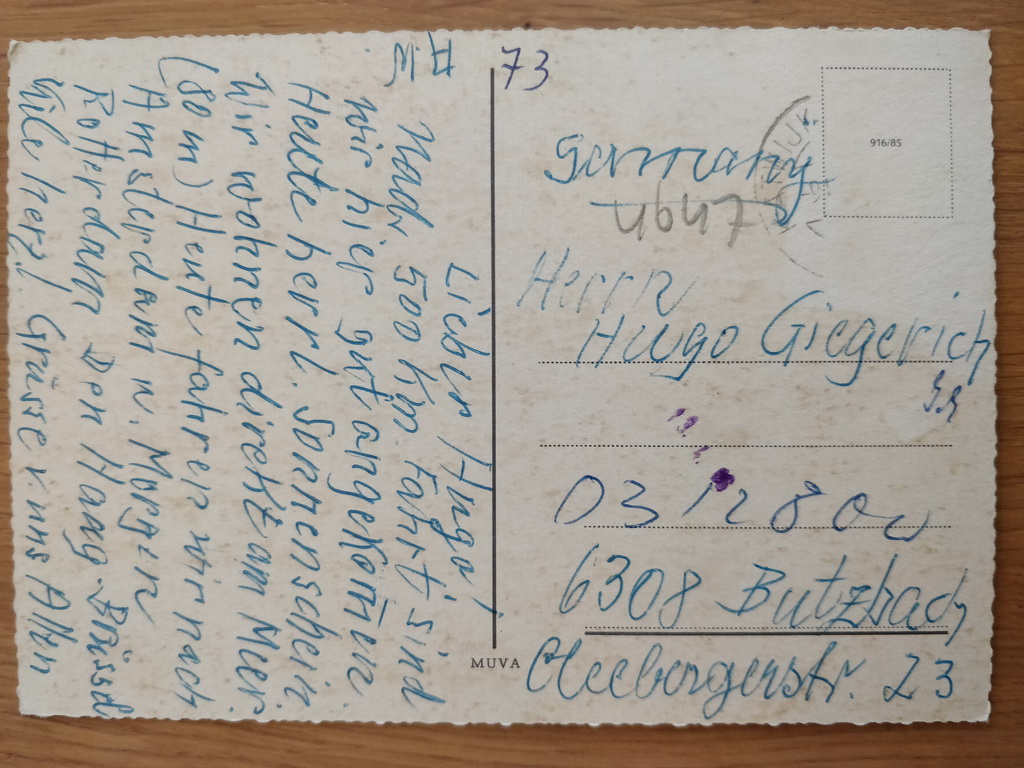 Lieber Hugo!
Nach 500 Km Fahrt sind
wir hier gut angekom̅en.
Heute herrl. Sonnenschein.
Wir wohnen direkt am Meer.
(80 m) Heute fahren wir nach
Amsterdam u. Morgen
Rotterdam Den Haag-Brüssel
Viele herzl. Grüsse v. uns Allen
73
916/85
Germany
46475
Herrn
Hugo Giegerich
03 12 80
6308 Butzbach
MUVA
Cleebergerstr. 23